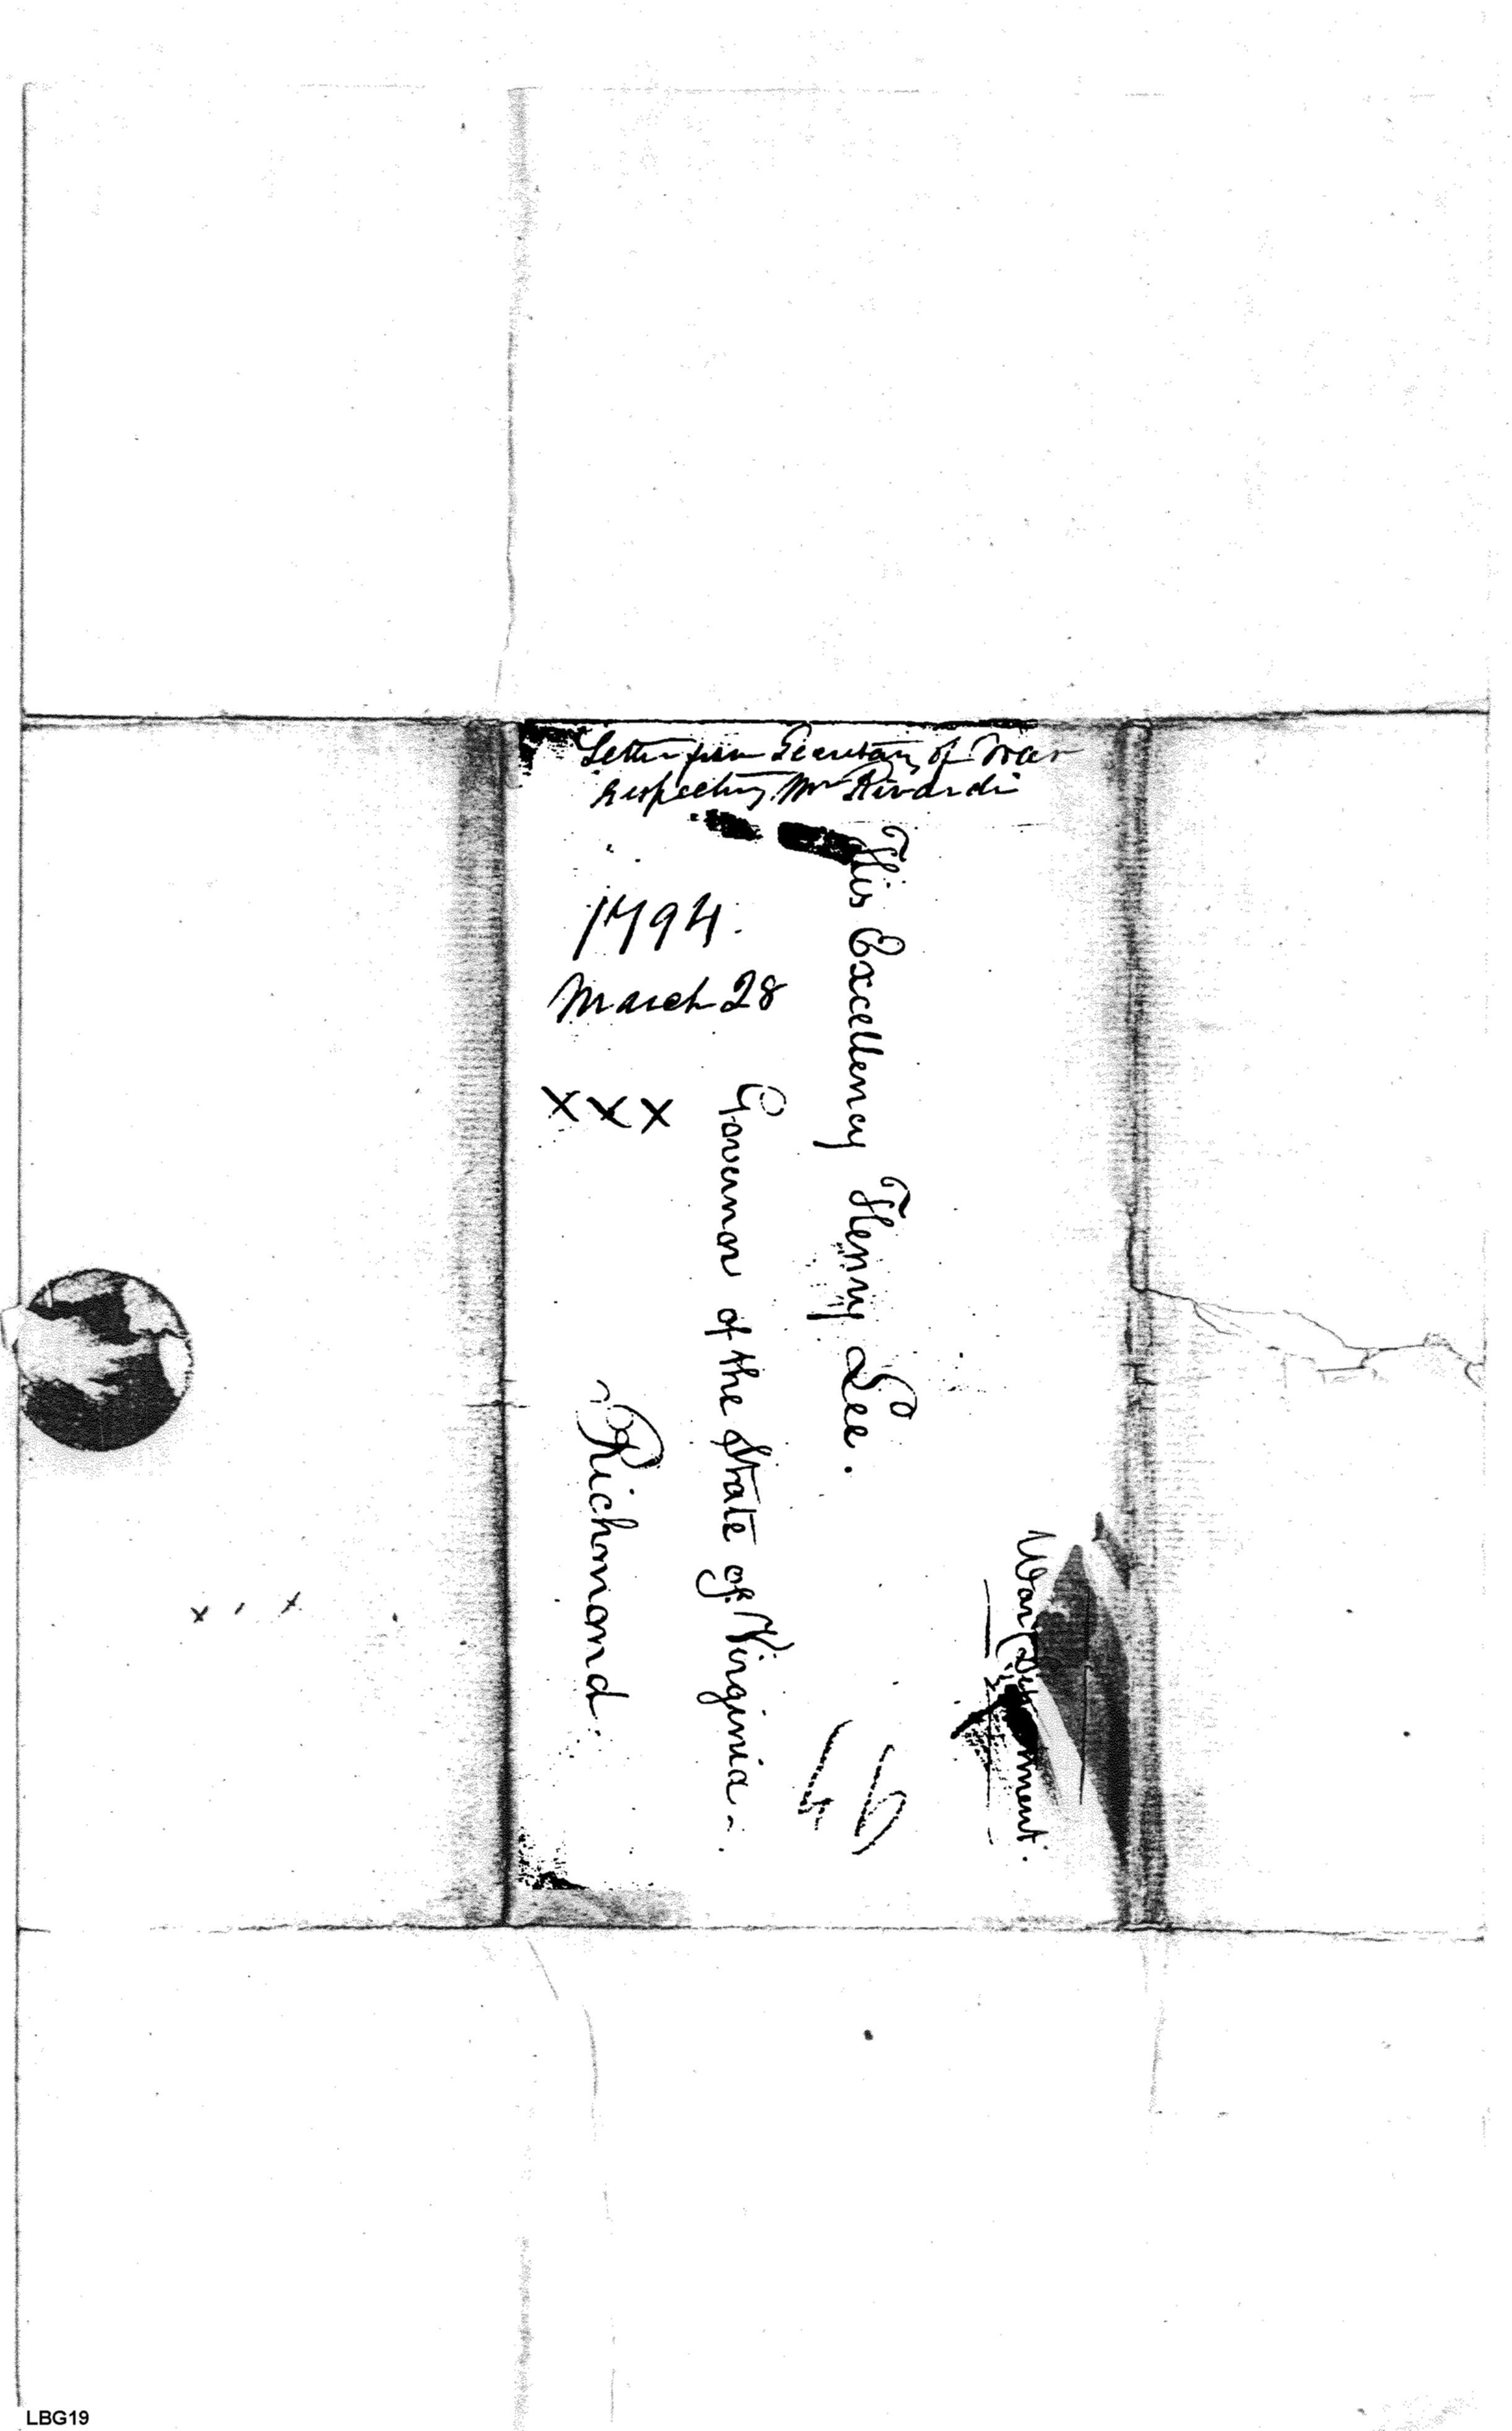 Letter from Secretary of War
respecting Mr Rivardi
1794.
March 28
x x x
War Department.
His Excellency Henry Lee.
Governor of the State of Virginia.
Richmond.
x x
LBG19